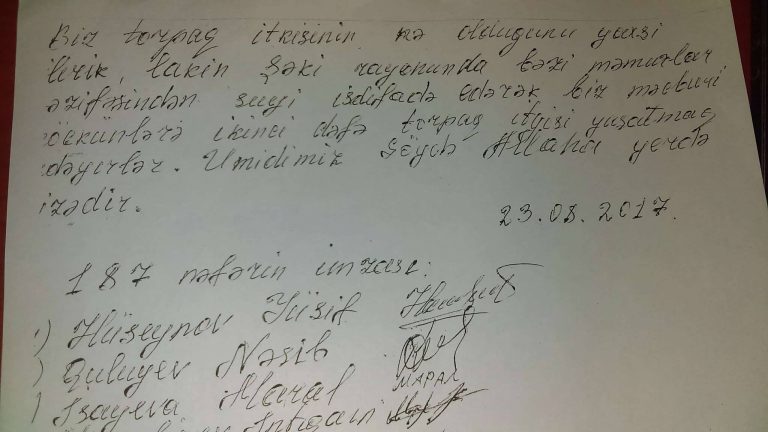 Biz torpaq itkisinin nə olduğunu yaxsi
ilirik, lakin Şəki rayonunda bəzi məmurlar
əzifəsindən suyi isdifadə edərək biz məcburi
öckünlərə ikinci dəfə torpaq itgisi yaşatmaq
dəyirlər. Umidimik Göydə Allaha yerdə
izədir.
23.08.2017.
187 nəfərin imzası:
) Hüseynov Yüsif
) Quluyev Nəsib
) İsayeva Maral МАРАЛ